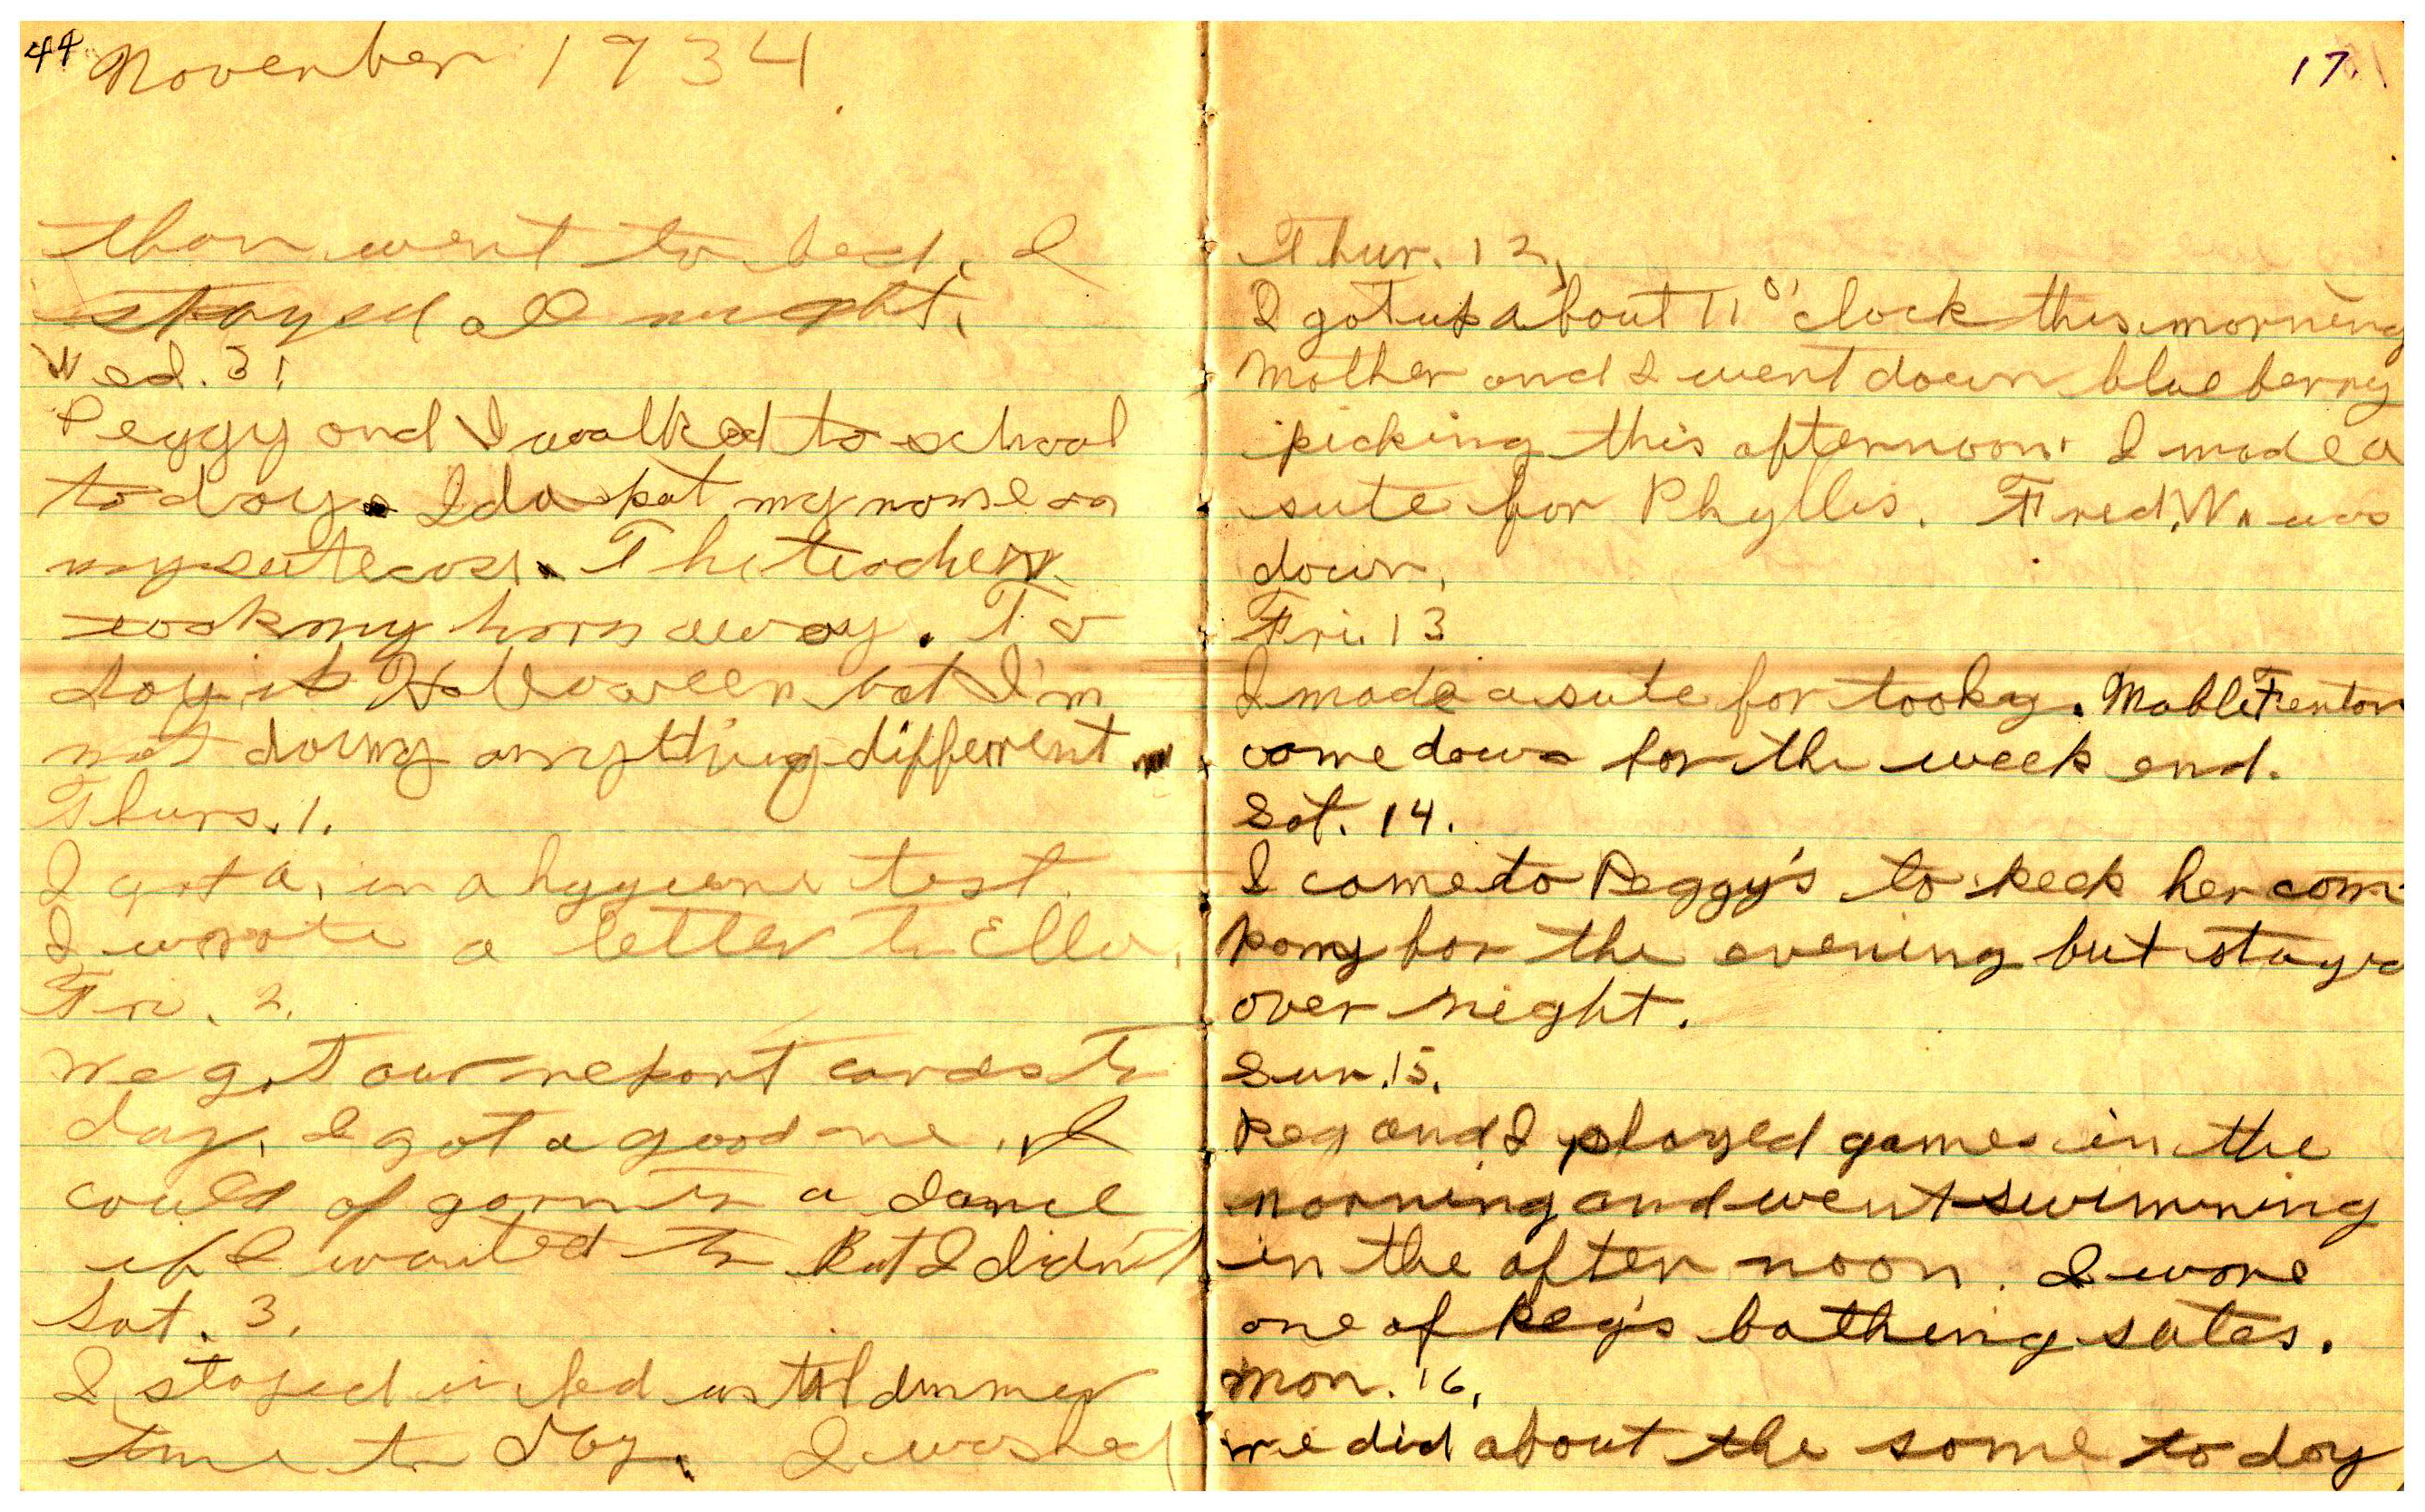 44 November 1934
than went to bed. I
stayed all night.
Wed. 31
Peggy and I walked to school
today. Ida put my name on
my sutecase. The teacher
took my horn away. To
day is Holloween but I'm
not doing anything different
Thurs. 1.
I got a. in a hygiene test.
I wrote a letter to Ella.
Fri. 2.
We got our report cards to
day. I got a good one. I
could of gorn to a dance
if I wanted to But I didn't
Sat. 3.
I stayed in bed until dinner
time to day. I washed
17.
Thur. 12.
I got up about 11 o'clock this morning
Mother and I went down blueberry
picking this afternoon. I made a
sute for Phyllis. Fred. W. was
down.
Fri. 13
I made a sute for tooky. Mable Fenton
come down for the week end.
Sat. 14.
I come to Peggy's to keep her com
pany for the evening but stayed
over night.
Sun. 15.
Peg and I played games in the
morning and went swimming
in the after noon. I wore
one of Peg's bathing sutes.
Mon. 16.
we did about the same to day